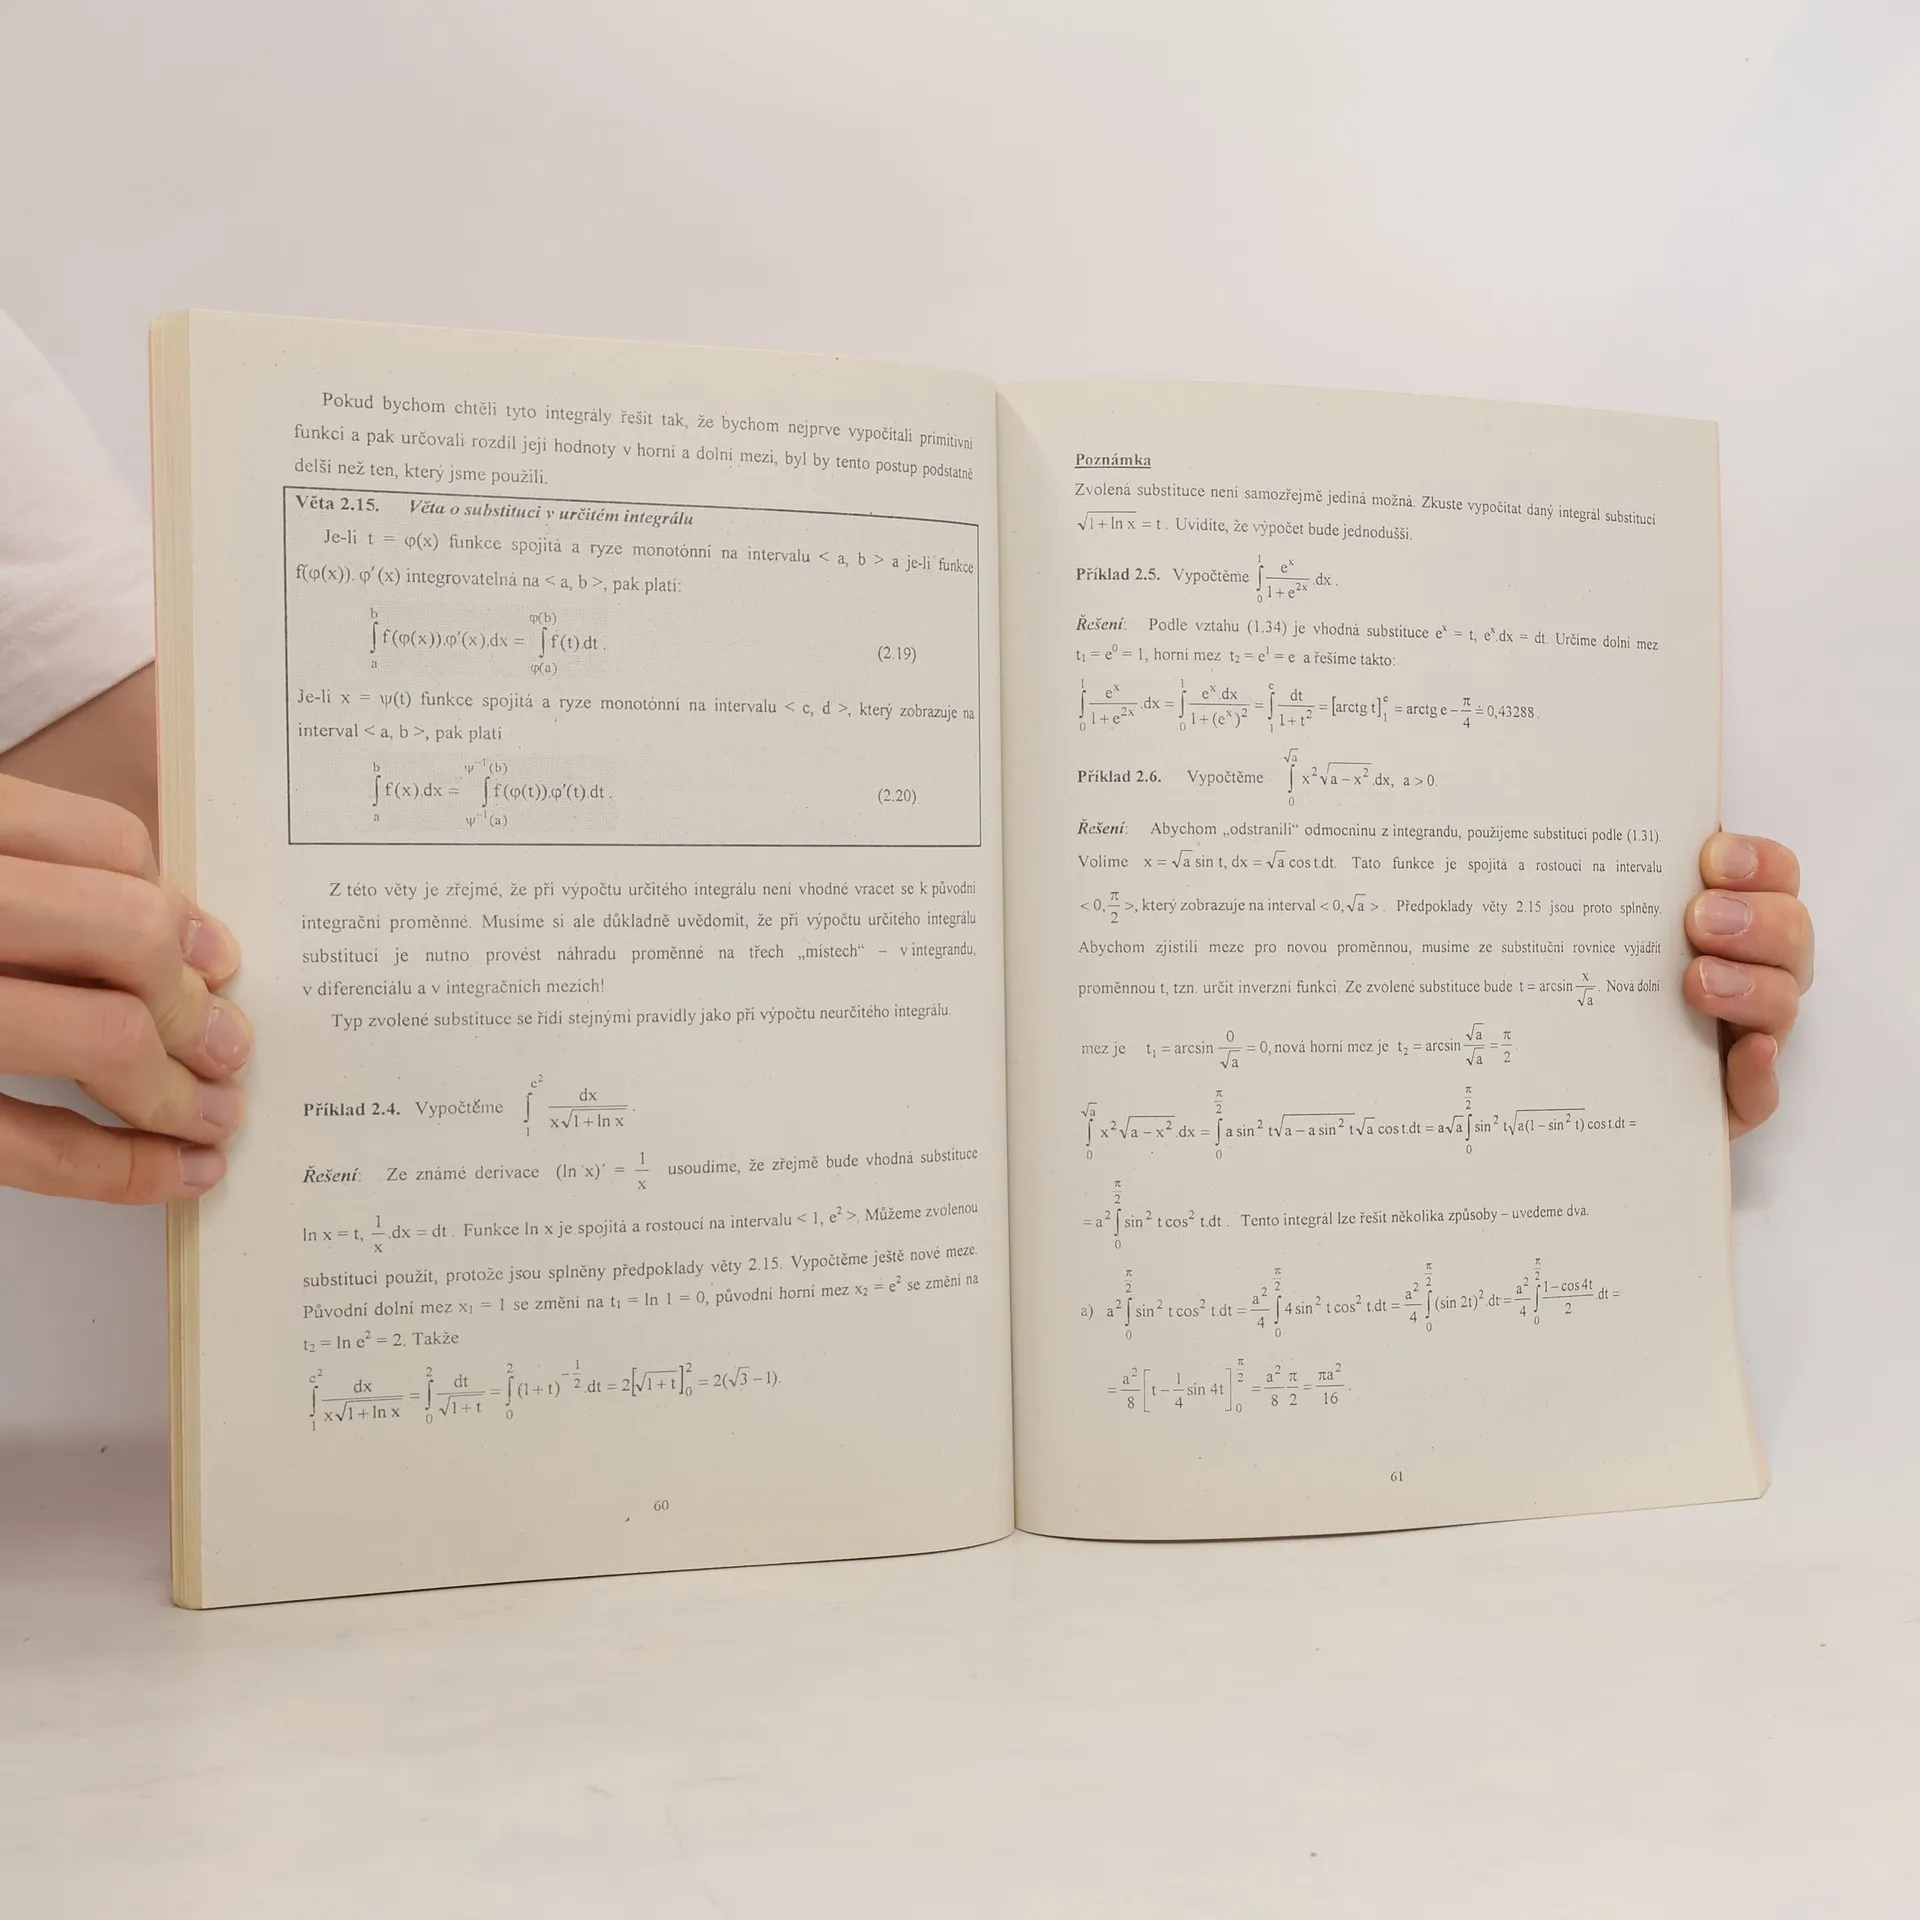 Pokud bychom chtěli tyto integrály řešit tak, že bychom nejprve vypočítali primitivní
funkci a pak určovali rozdíl její hodnoty v horní a dolní mezi, byl by tento postup podstatně
delší než ten, který jsme použili.
Věta 2.15. Věta o substituci v určitém integrálu
Je-li t = φ(x) funkce spojitá a ryze monotónní na intervalu < a, b > a je-li funkce
f(φ(x)). φ′(x) integrovatelná na < a, b >, pak platí:
∫_a^b f(φ(x)).φ′(x).dx = ∫_{φ(a)}^{φ(b)} f(t).dt . (2.19)
Je-li x = ψ(t) funkce spojitá a ryze monotónní na intervalu < c, d >, který zobrazuje na
interval < a, b >, pak platí
∫_a^b f(x).dx = ∫_{ψ⁻¹(a)}^{ψ⁻¹(b)} f(φ(t)).φ′(t).dt . (2.20)
Z této věty je zřejmé, že při výpočtu určitého integrálu není vhodné vracet se k původní
integrační proměnné. Musíme si ale důkladně uvědomit, že při výpočtu určitého integrálu
substitucí je nutno provést náhradu proměnné na třech „místech“ – v integrandu,
v diferenciálu a v integračních mezích!
Typ zvolené substituce se řídí stejnými pravidly jako při výpočtu neurčitého integrálu.
Příklad 2.4. Vypočtěme ∫_1^{e²} dx / (x√(1 + ln x)) .
Řešení: Ze známé derivace (ln x)′ = 1/x usoudíme, že zřejmě bude vhodná substituce
ln x = t, 1/x .dx = dt . Funkce ln x je spojitá a rostoucí na intervalu < 1, e² >. Můžeme zvolenou
substituci použít, protože jsou splněny předpoklady věty 2.15. Vypočtěme ještě nové meze.
Původní dolní mez x₁ = 1 se změní na t₁ = ln 1 = 0, původní horní mez x₂ = e² se změní na
t₂ = ln e² = 2. Takže
∫_1^{e²} dx / (x√(1 + ln x)) = ∫_0^2 dt / √(1 + t) = ∫_0^2 (1 + t)^{-1/2} .dt = 2[√(1 + t)]_0^2 = 2(√3 – 1).
60
Poznámka
Zvolená substituce není samozřejmě jediná možná. Zkuste vypočítat daný integrál substitucí
√(1 + ln x) = t . Uvidíte, že výpočet bude jednodušší.
Příklad 2.5. Vypočtěme ∫_0^1 e^x / (1 + e^{2x}) .dx .
Řešení: Podle vztahu (1.34) je vhodná substituce e^x = t, e^x.dx = dt. Určíme dolní mez
t₁ = e⁰ = 1, horní mez t₂ = e¹ = e a řešíme takto:
∫_0^1 e^x / (1 + e^{2x}) .dx = ∫_0^1 e^x.dx / (1 + (e^x)²) = ∫_1^e dt / (1 + t²) = [arctg t]_1^e = arctg e – π/4 ≐ 0,43288 .
Příklad 2.6. Vypočtěme ∫_0^{√a} x²√(a – x²) .dx, a > 0.
Řešení: Abychom „odstranili“ odmocninu z integrandu, použijeme substituci podle (1.31).
Volíme x = √a sin t, dx = √a cos t.dt. Tato funkce je spojitá a rostoucí na intervalu
< 0, π/2 >, který zobrazuje na interval < 0, √a > . Předpoklady věty 2.15 jsou proto splněny.
Abychom zjistili meze pro novou proměnnou, musíme ze substituční rovnice vyjádřit
proměnnou t, tzn. určit inverzní funkci. Ze zvolené substituce bude t = arcsin x/√a . Nová dolní
mez je t₁ = arcsin 0/√a = 0, nová horní mez je t₂ = arcsin √a/√a = π/2 .
∫_0^{√a} x²√(a – x²) .dx = ∫_0^{π/2} a sin² t√(a – a sin² t)√a cos t.dt = a√a ∫_0^{π/2} sin² t√(a(1 – sin² t)) cos t.dt =
= a² ∫_0^{π/2} sin² t cos² t.dt . Tento integrál lze řešit několika způsoby – uvedeme dva.
a) a² ∫_0^{π/2} sin² t cos² t.dt = a²/4 ∫_0^{π/2} 4 sin² t cos² t.dt = a²/4 ∫_0^{π/2} (sin 2t)² .dt = a²/4 ∫_0^{π/2} (1 – cos 4t)/2 .dt =
= a²/8 [t – 1/4 sin 4t]_0^{π/2} = a²/8 π/2 = πa²/16 .
61